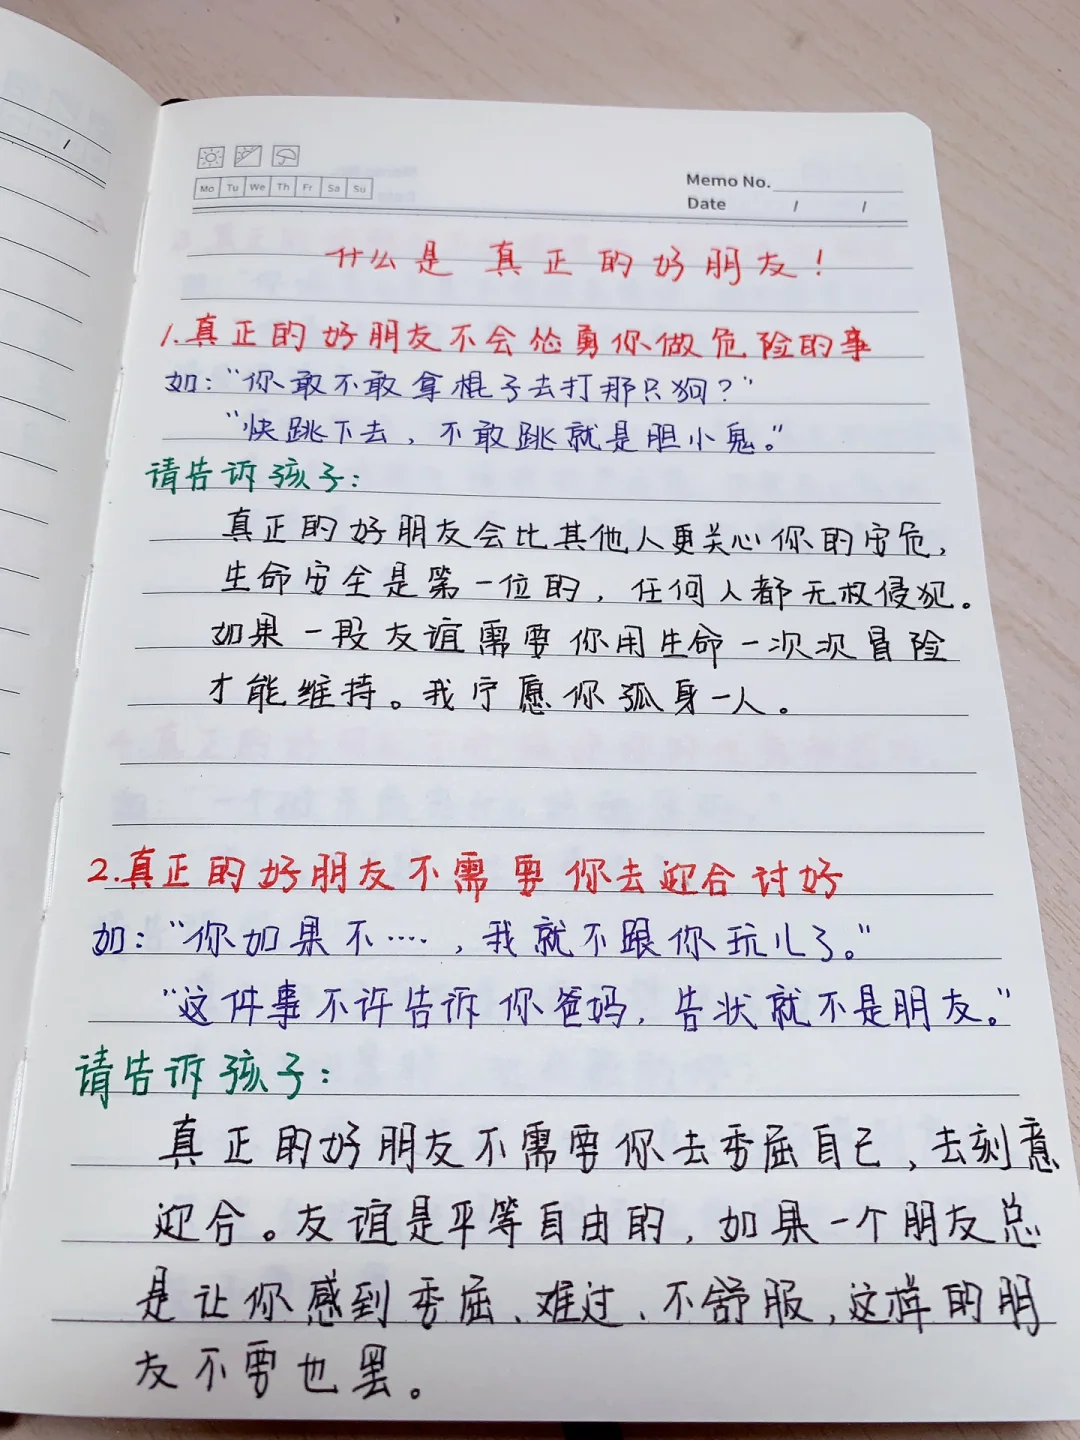 Mo Tu We Th Fr Sa Su
Memo No.
Date / /
什么是 真正的好朋友！
1.真正的好朋友不会怂勇你做危险的事
如：“你敢不敢拿棍子去打那只狗？”
“快跳下去，不敢跳就是胆小鬼。”
请告诉孩子：
真正的好朋友会比其他人更关心你的安危，
生命安全是第一位的，任何人都无权侵犯。
如果一段友谊需要你用生命一次次冒险
才能维持。我宁愿你孤身一人。
2.真正的好朋友不需要你去迎合讨好
如：“你如果不····，我就不跟你玩儿了。”
“这件事不许告诉你爸妈，告状就不是朋友。”
请告诉孩子：
真正的好朋友不需要你去委屈自己，去刻意
迎合。友谊是平等自由的，如果一个朋友总
是让你感到委屈、难过、不舒服，这样的朋
友不要也罢。